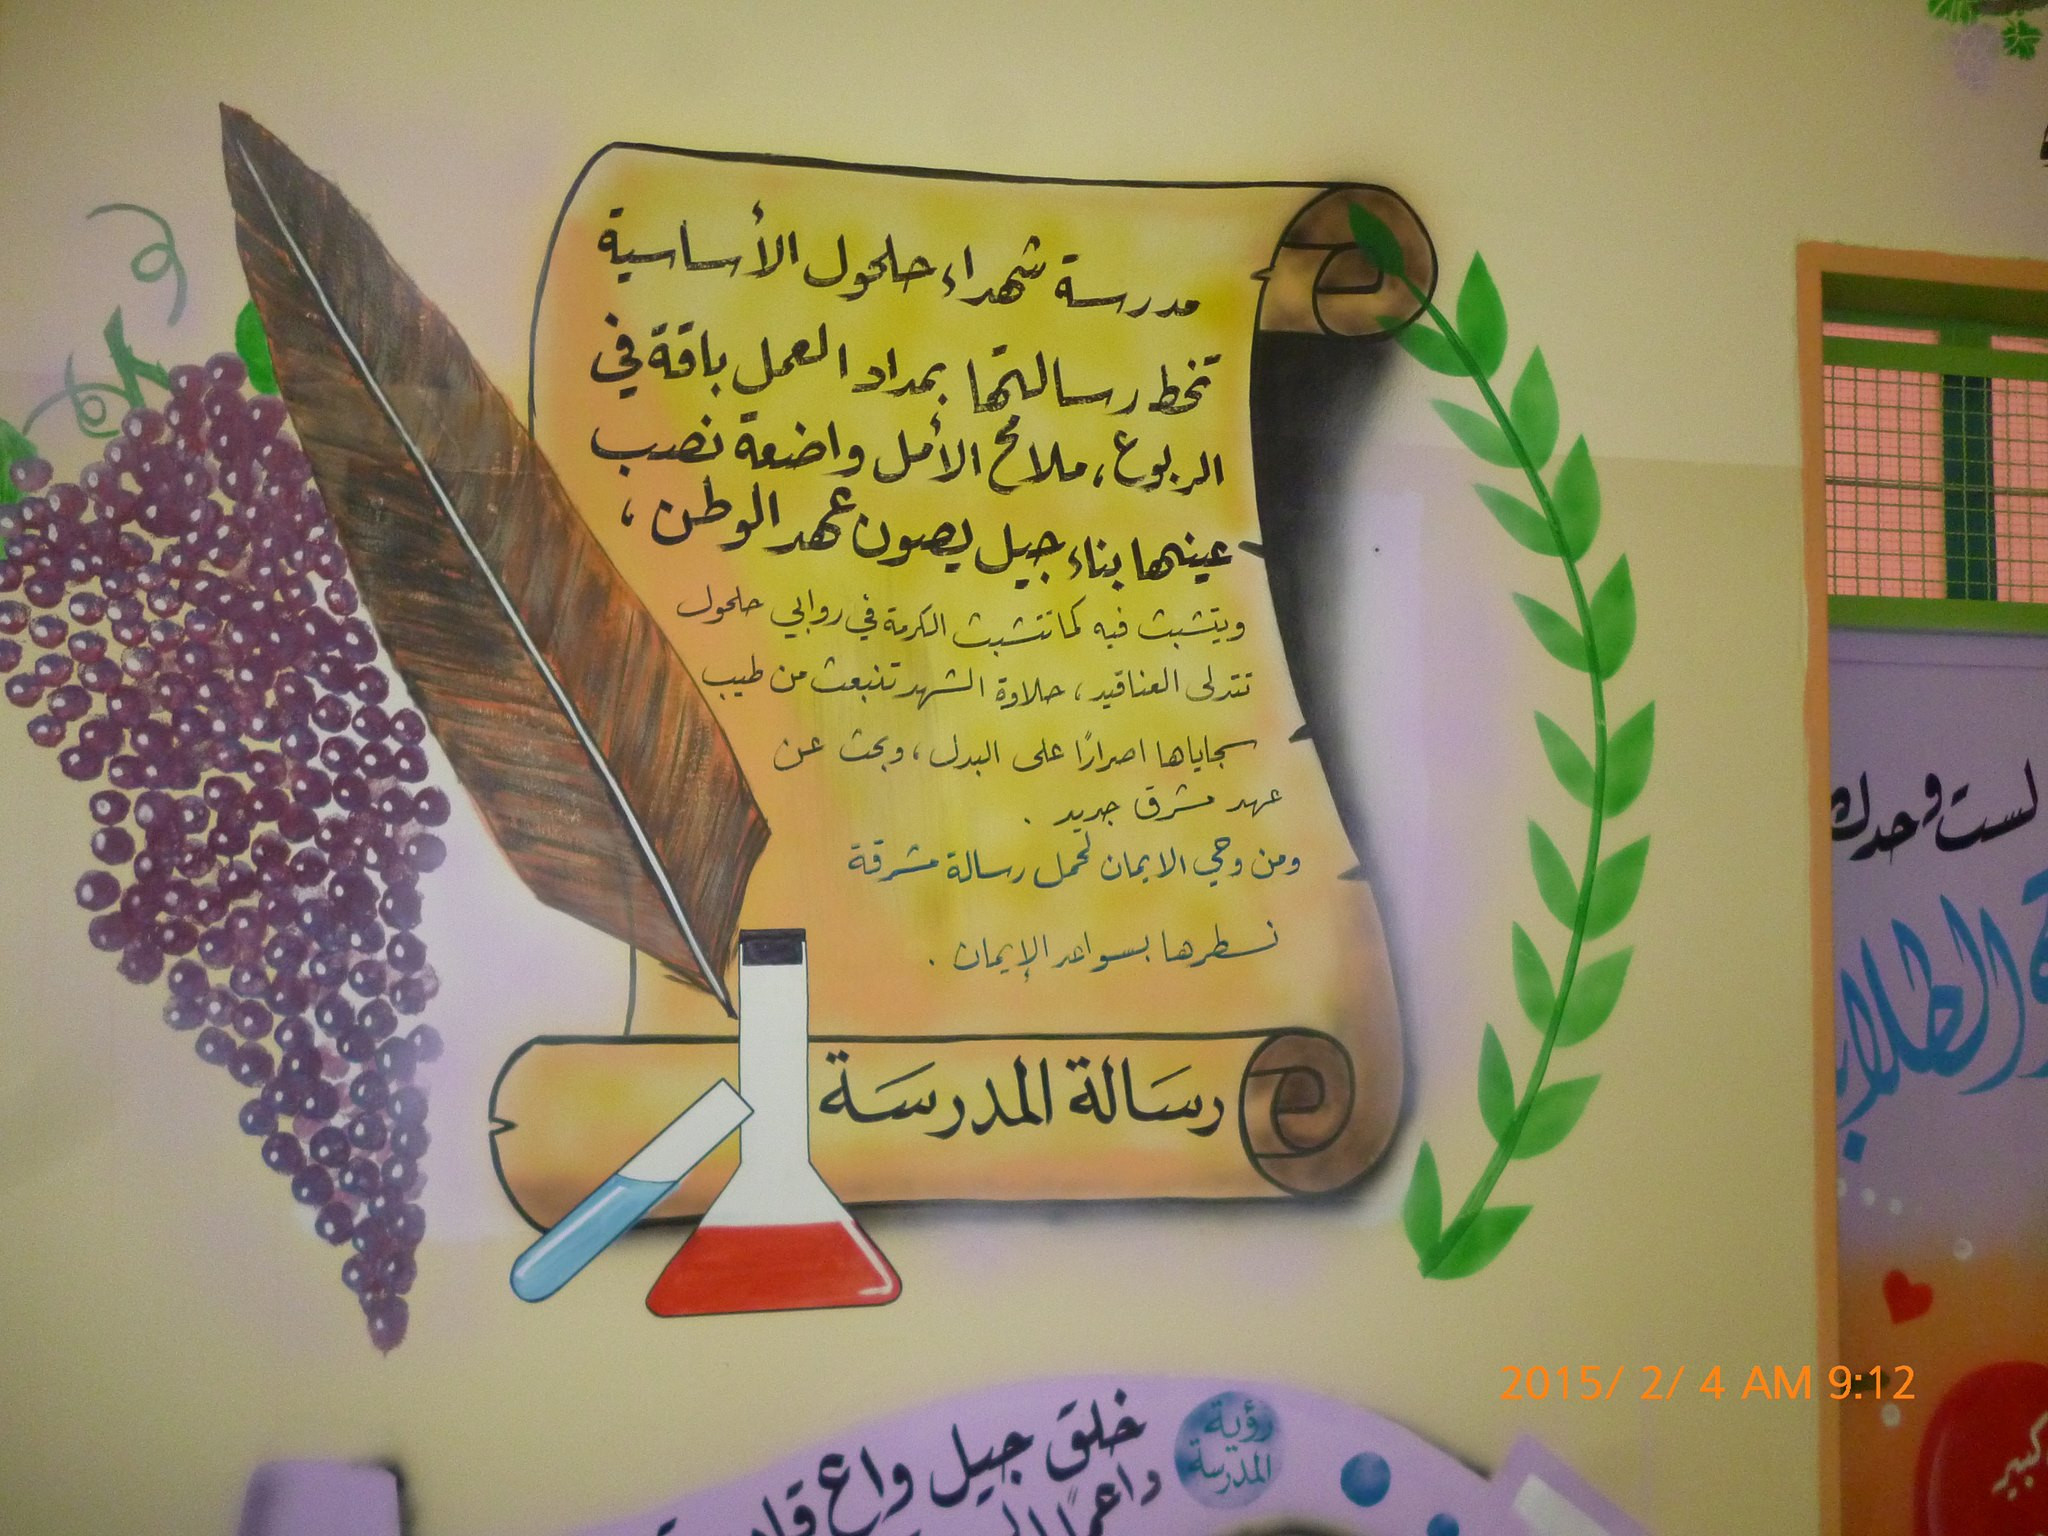 مدرسة شهداء حلحول الأساسية
تخط رسالتها بمداد العمل باقة في
الربوع، ملامح الأمل واضعة نصب
عينها بناء جيل يصون عهد الوطن،
ويتشبث فيه كما تتشبث الكرمة في روابي حلحول
تتدلى العناقيد، حلاوة الشهد تنبعث من طيب
سجاياها اصرارًا على البدل، وبحث عن
عهد مشرق جديد.
ومن وحي الايمان لحمل رسالة مشرقة
نسطرها بسواعد الإيمان.
رسَالة المدرسَة
لست وحدك
الطلاب
2015/ 2/ 4 AM 9:12
رؤية
المدرسة
خلق جيل واع
كبير